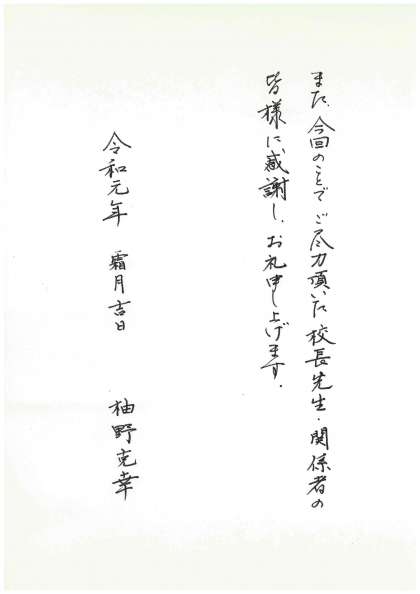 また、今回のことでご尽力頂いた校長先生・関係者の
皆様に、感謝し、お礼申し上げます。
令和元年 霜月吉日 柚野克幸